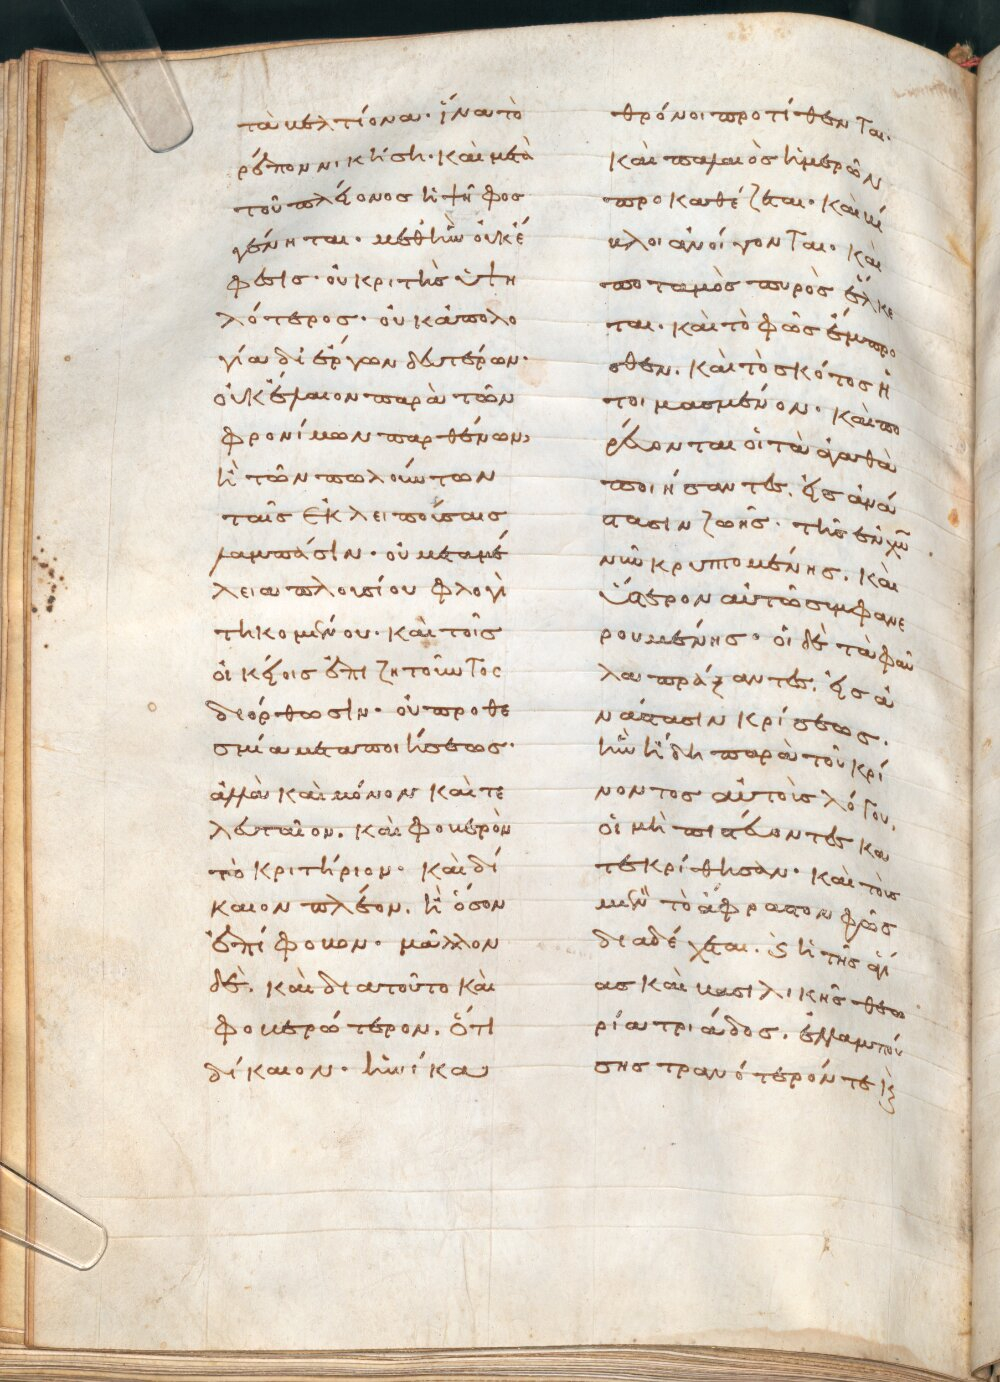 τὰ βελτίονα· ἵνα τὸ
ρέπον νικήσῃ· καὶ μετὰ
τοῦ πλείονος ἡ ψῆφος
γένηται· μεθ' ἣν οὐκ ἔ
φεσις· οὐ κριτὴς ὑψη
λότερος· οὐκ ἀπολο
γία δι' ἔργων δευτέρων·
οὐκ ἔλαιον παρὰ τῶν
φρονίμων παρθένων,
ἢ τῶν πωλούντων
ταῖς ἐκλειπούσαις
λαμπάσιν· οὐ μεταμέ
λεια πλουσίου φλογὶ
τηκομένου· καὶ τοῖς
οἰκείοις ἐπιζητοῦντος
διόρθωσιν· οὐ προθε
σμία μεταποιήσεως·
ἀλλὰ καὶ μόνον καὶ τε
λευταῖον. καὶ φοβερὸν
τὸ κριτήριον· καὶ δί
καιον πλέον. ἢ ὅσον
ἐπίφοβον· μᾶλλον
δὲ. καὶ διατοῦτο καὶ
φοβερώτερον. ὅτι
δίκαιον· ἡνίκα
θρόνοι προτίθενται·
καὶ παλαιὸς ἡμερῶν
προκαθέζεται· καὶ βί
βλοι ἀνοίγονται· καὶ
ποταμὸς πυρὸς ἕλκε
ται· καὶ τὸ φῶς ἔμπρο
σθεν. καὶ τὸ σκότος ἡ
τοιμασμένον· καὶ πο
ρεύονται οἱ τὰ ἀγαθὰ
ποιήσαντες. εἰς ἀνά
στασιν ζωῆς· τῆς ἐν χῶ
νῦν κρυπτομένης. καὶ
ὕστερον αὐτῶ συμφανε
ρουμένης· οἱ δὲ τὰ φαῦ
λα πράξαντες. εἰς ἀ
νάστασιν κρίσεως.
ἣν ἤδη παρὰ τοῦ κρί
νοντος αὐτοὺς λόγου.
οἱ μὴ πιστεύοντες κα
τεκρίθησαν· καὶ τοὺς
μὲν τὸ ἄφραστον φῶς
διαδέχεται. καὶ ἡ τῆς ἁγί
ας καὶ βασιλικῆς θεω
ρία τριάδος. ἐλλαμπού
σης τρανότερόν τε καὶ